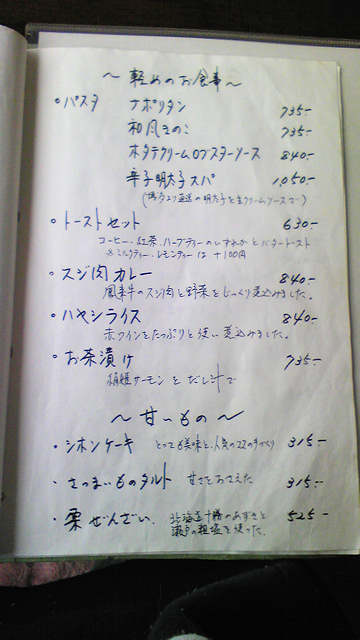 〜 軽めのお食事 〜
・パスタ ナポリタン 735-
和風きのこ 735-
ホタテクリームロブスターソース 840-
辛子明太子スパ 1,050-
(博多より直送の明太子を生クリームソースで)
・トーストセット 630-
コーヒー.紅茶.ハーブティーのいずれかとバタートースト
※ミルクティー.レモンティーは +100円
・スジ肉カレー 840-
牛のスジ肉と野菜をじっくり煮込みました。
・ハヤシライス 840-
赤ワインをたっぷりと使い煮込みました。
・お茶漬け 735-
サーモンをだし汁で
〜 甘いもの 〜
・シホンケーキ とっても美味と、人気の 手づくり 315-
・さつまいものタルト 甘さをおさえた 315-
・栗ぜんざい. 北海道十勝のあずきと 525-
瀬戸の粗塩を使った.